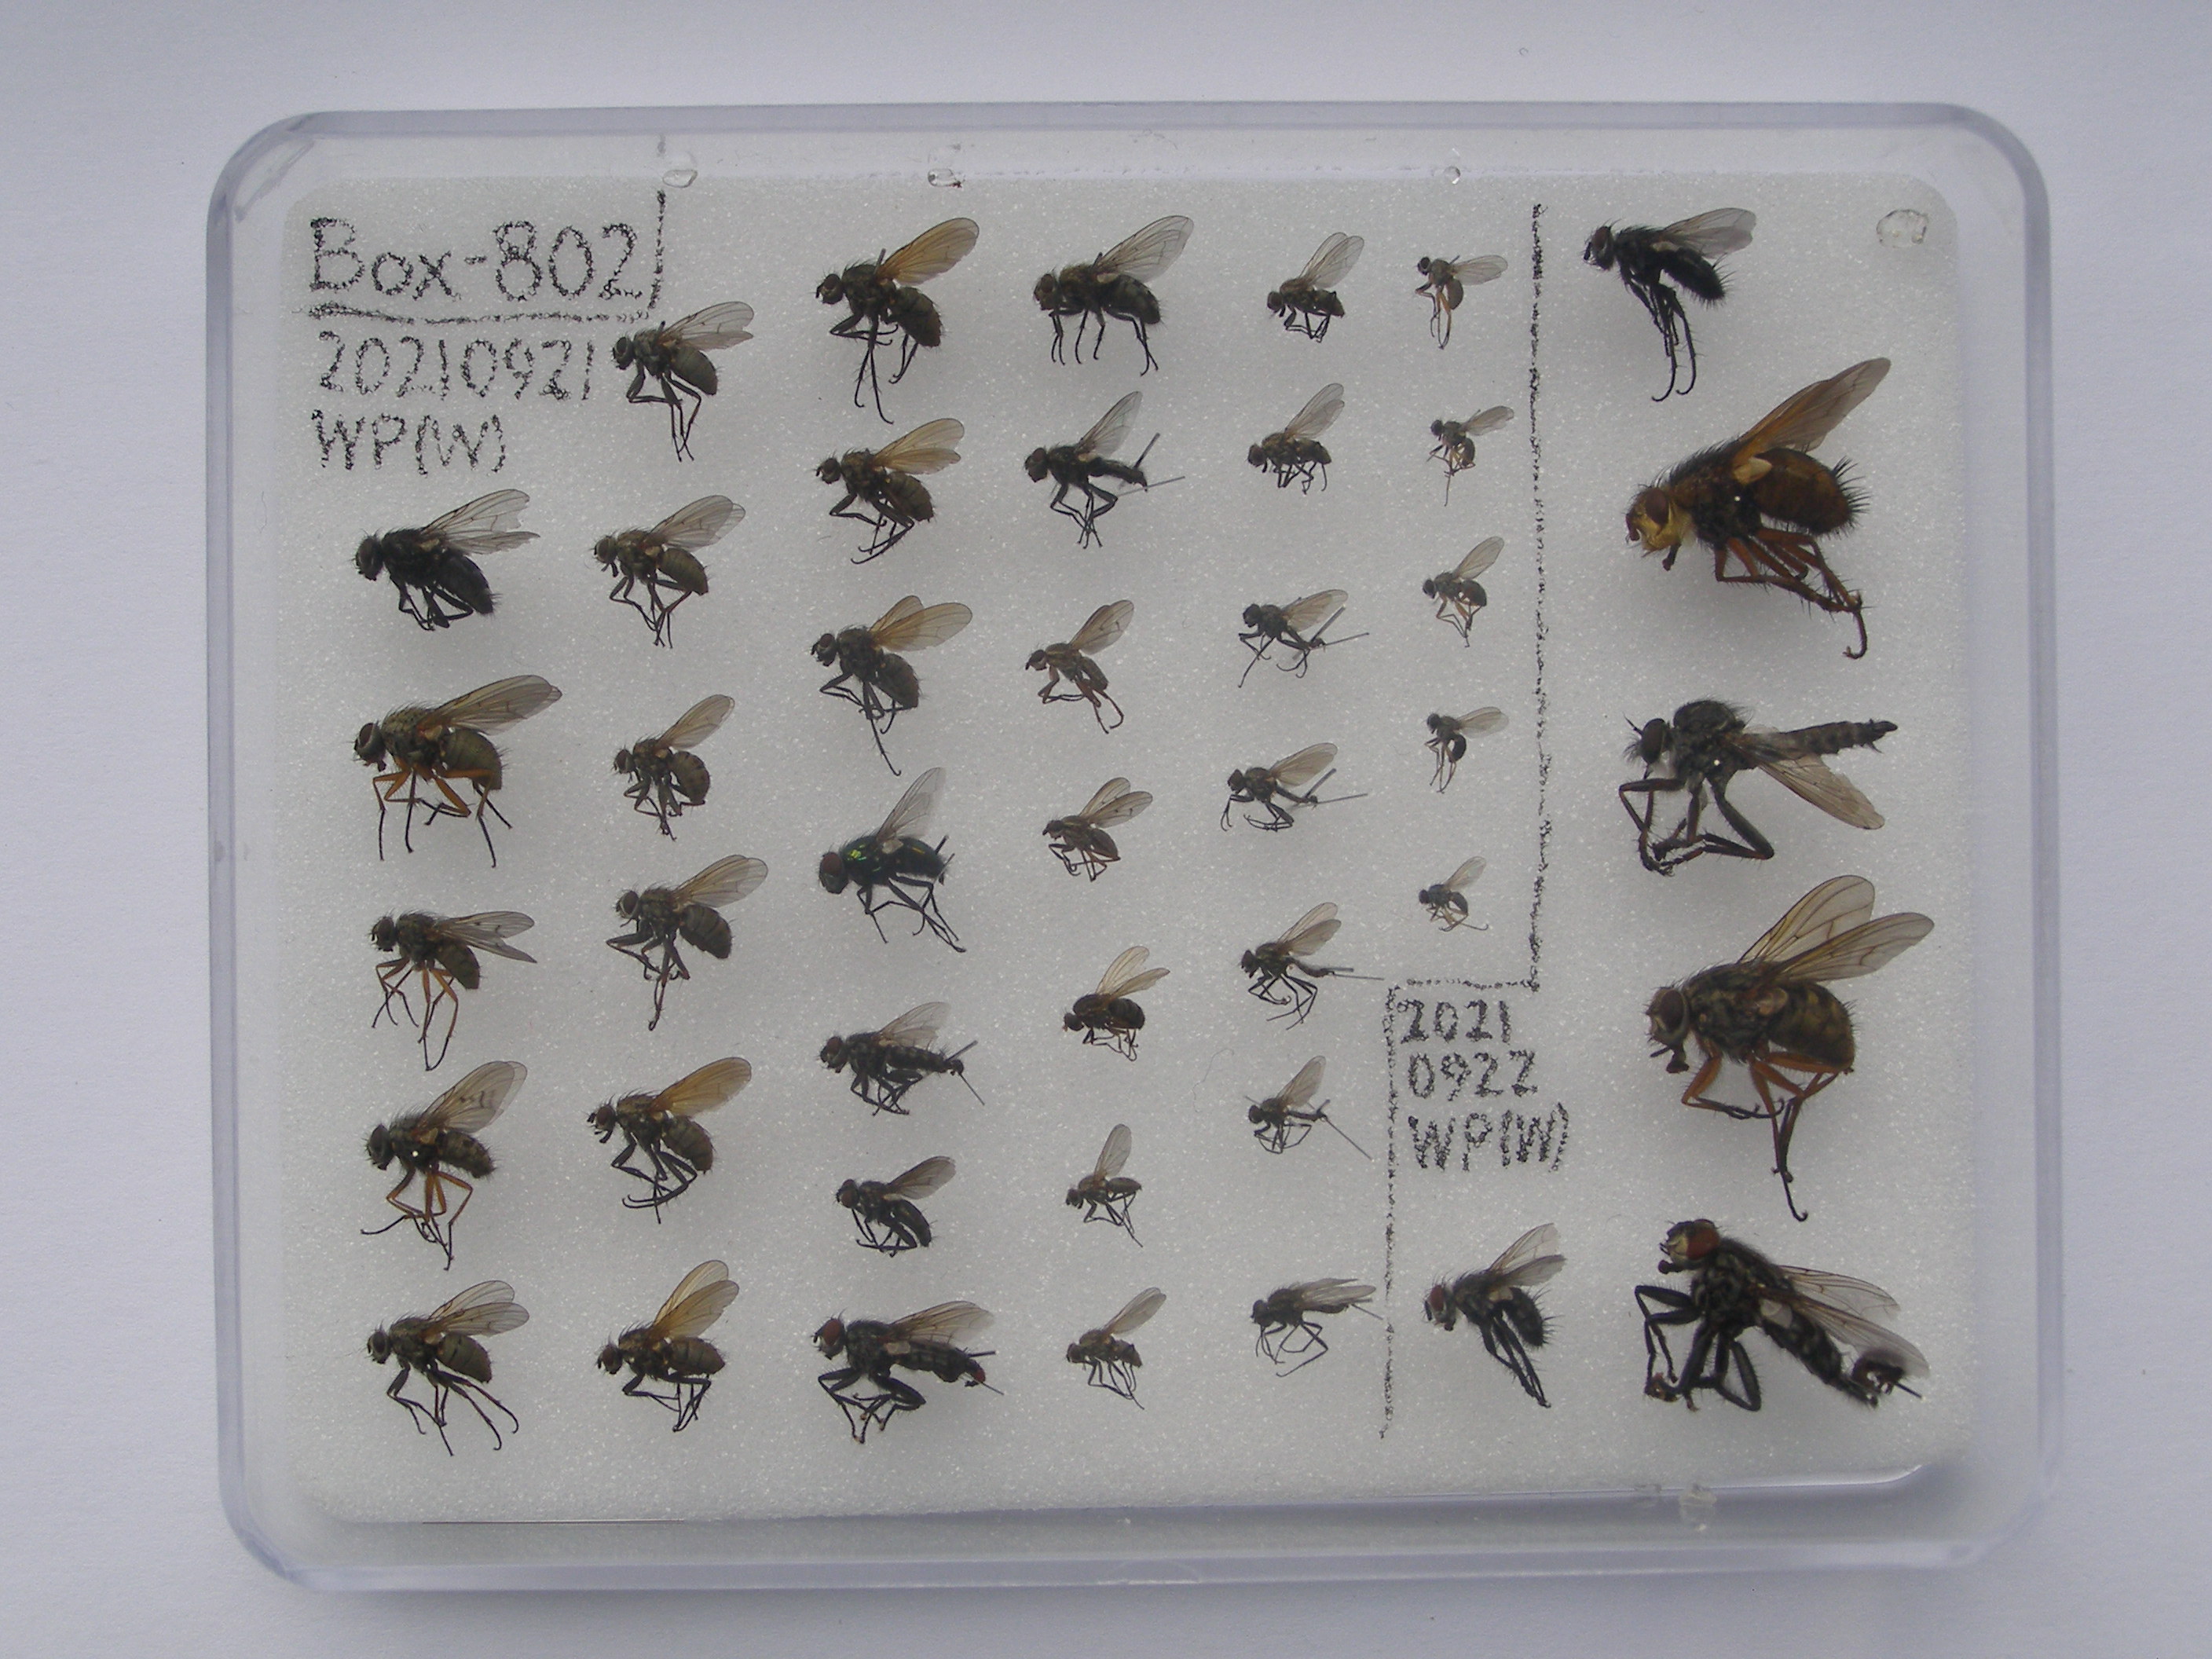 Box-802
20210921
WP(W)
2021
0922
WP(W)